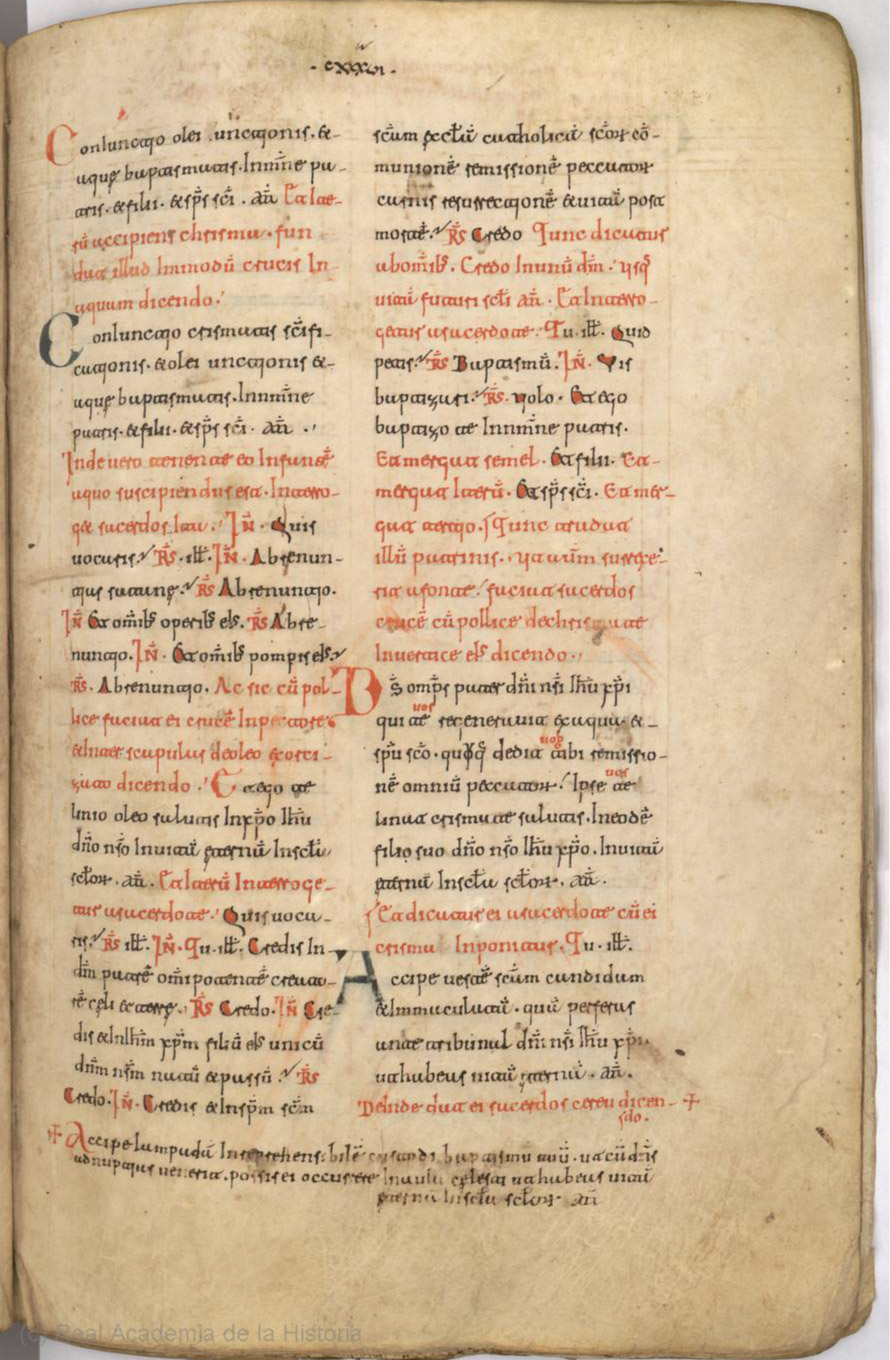 · cxxxvi ·
Coniunctio olei unctionis · &
aque baptismatis. In nm̄ne pa
tris · & filii · & sp̄s sc̄i · am̄ Et alte
rū accipiens chrisma · fun
dat illud in modū crucis in
aquam dicendo ·
Coniunctio crismatis sc̄ifi
cationis · & olei unctionis &
aque baptismatis. In nm̄ne
patris · & filii · & sp̄s sc̄i · am̄ ·
Inde uero teneate eo Infantē
a quo suscipiendus est · Interro
get sacerdos Ita · IN̄ · Quis
uocaris · R̄s · ill̄ · IN̄ · Abrenun
tias satane · R̄s Abrenuntio.
IN̄ Et om̄ib; operib; eius. R̄s Abre
nuntio. IN̄ · Et om̄ib; pompis eius
R̄s · Abrenuntio. Ac sic cū pol
lice faciat ei crucē In pectore
& Inter scapulas de oleo exorci
zato dicendo · Et ego te
linio oleo salutis In xp̄o ih̄u
dn̄o nr̄o In uitā eternā In sc̄la
sc̄lor · am̄ · Et alterū Interroge
tur a sacerdote · Quis uoca
ris R̄s ill̄. IN̄ · Tu · ill̄ · Credis In
dm̄ patrē om̄ipotentē creato
rē celi & terre · R̄s Credo · IN̄ Cre
dis & In ih̄m xp̄m filiū eius unicū
dn̄m nr̄m natū & passū R̄s
Credo · IN̄ · Credis & In sp̄m sc̄m
sc̄am eccl̄ā catholicā sc̄or cō
munionē remissionē peccator
carnis resurrectionē & uitā post
mortē · R̄s Credo Tunc dicatur
ab om̄ib; · Credo In unū dm̄ · usq;
uitā futuri sc̄li am̄ · Et Interro
getur a sacerdote · Tu · ill̄ · Quid
petis · R̄s Baptismū · IN̄ · Vis
baptizari · R̄s · uolo · Et ego
baptizo te In nm̄ne patris ·
Et mergat semel · Et filii · Et
mergat Iterū · Et sp̄s sc̄i · Et mer
gat tertio · Tunc tradat
illū patrinis · ut cū surrexe
rit a fonte faciat sacerdos
crucē cū pollice de chrismate
In uertice eius dicendo ·
Ds̄ omp̄s pater dn̄i nr̄i ih̄u xp̄i
uos
qui te regenerauit ex aqua · &
uob
sp̄u sc̄o · quiq; dedit tibi remissio
uos
nē omniū peccator · Ipse te
liniat crismate salutis · In eodē
filio suo dn̄o nr̄o ih̄u xp̄o · In uitā
eternā In sc̄la sc̄lor · am̄ ·
Et dicatur ei a sacerdote cū ei
crisma Inponitur · Tu · ill̄.
Accipe uestē sc̄am candidam
& Inmaculatā · quā perferas
ante tribunal dn̄i nr̄i ih̄u xp̄i
ut habeas uitā eternā · am̄ ·
Deinde dat ei sacerdos cereū dicen
do ·
Accipe lampadā Inreprehensibilē custodi baptismū tuū · ut cū dn̄s
ad nuptias uenerit · possis ei occurrere In aula celesti ut habeas uitā
eternā In sc̄la sc̄lor · am̄
(c) Real Academia de la Historia